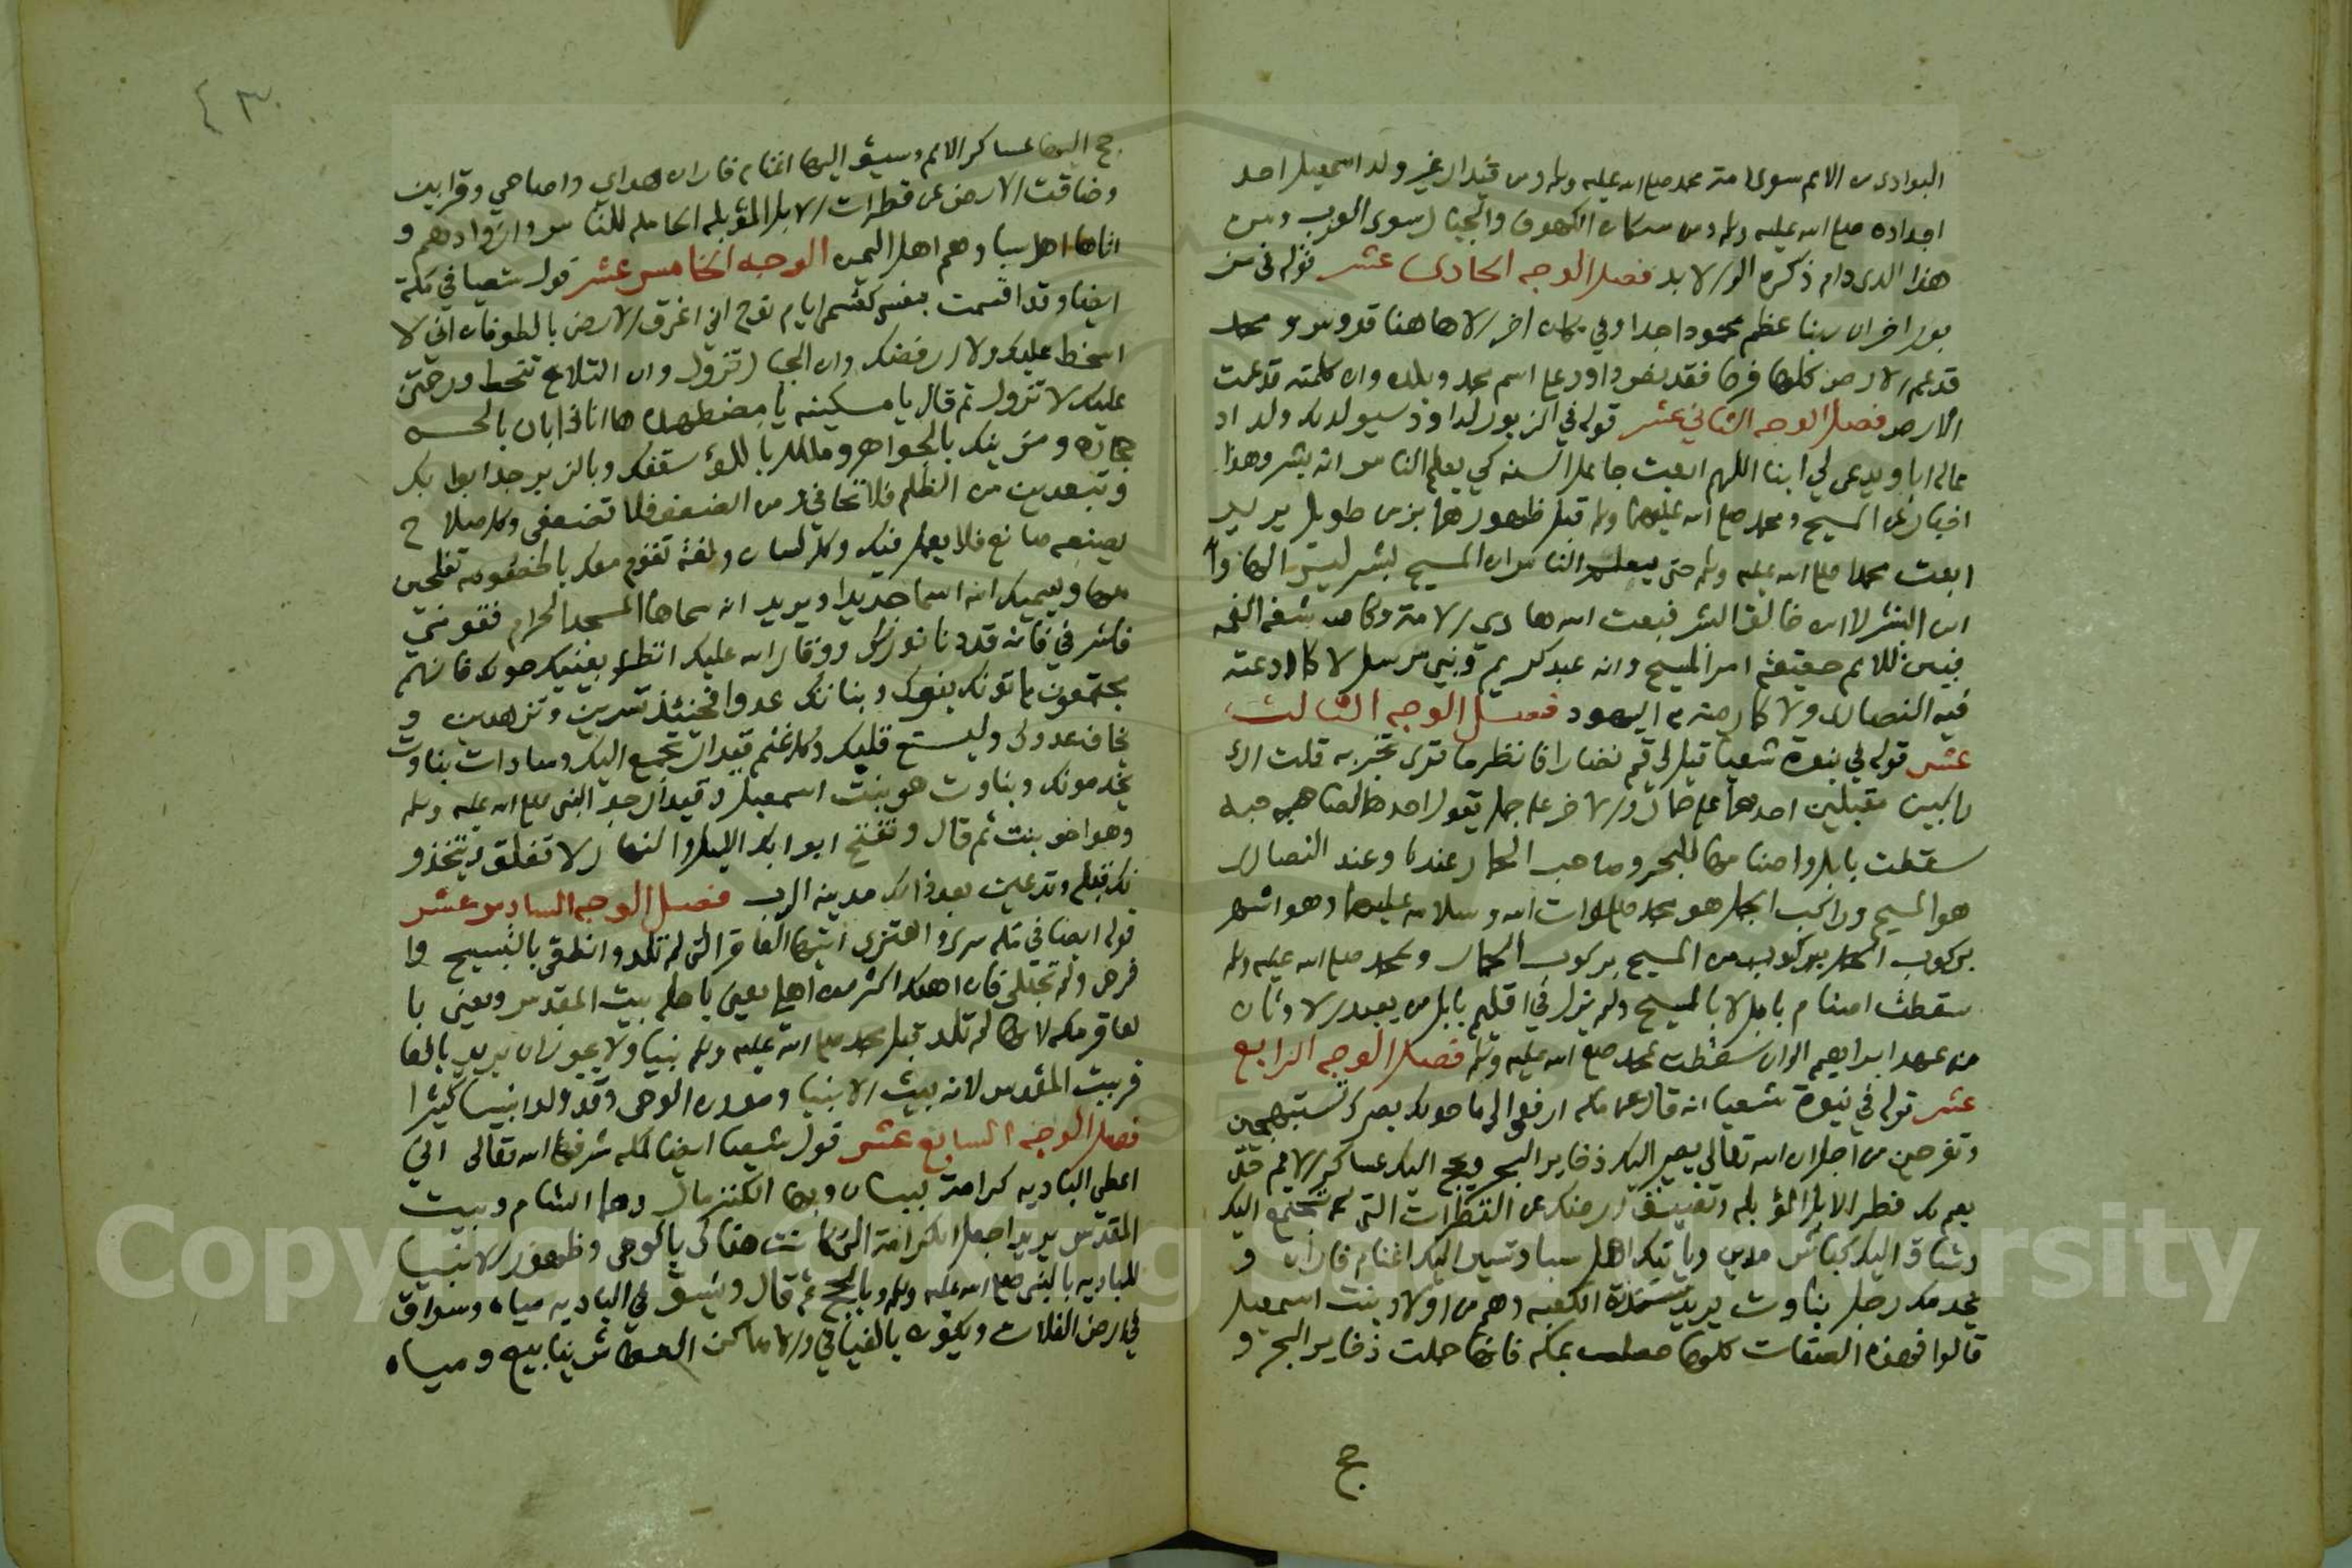 البوادى من الامم سوى امة محمد صلع الله عليه وسلم ومن قيدار غير ولد اسمعيل احد
اجداده صلع الله عليه وسلم ومن سكان الكهوف والجبال سوى العرب ومن
هذا الذى دام ذكره الى الابد فصل الوجه الحادى عشر قوله فى مز
بور اخر ان ربنا عظم محمودا جدا وفي مكان اخر الاها هنا قدوس ومحمد
قد عم الارض كلها فرحا فقد نص داود على اسم محمد وبلده وان كلمته قد عمت
الارض فصل الوجه الثاني عشر قوله في الزبور لداود سيولد لك ولد اد
عا له ابا ويدعى لي ابنا اللهم ابعث جاعل السنه كي يعلم الناس انه بشر وهذا
اخبار عن المسيح ومحمد صلع الله عليهما وسلم قبل ظهورهما بزمن طويل يريد
ابعث محمدا صلع الله عليه وسلم حتى يعلم الناس ان المسيح بشر ليس الها وا
ابن البشر لا ابن خالق البشر فبعث الله هادي الامة وكاشف الغمه
فبين للامم حقيقة امر المسيح وانه عبد كريم ونبي مرسل لا كما ادعته
فيه النصارى ولا كما رمته به اليهود فصل الوجه الثالث
عشر قوله في نبوة شعيا قيل لي قم نضارا فانظر ما ترى تخبر به قلت ارى
راكبين مقبلين احدهما على حمار والاخر على جمل يقول احدهما لصاحبه
سقطت بابل واصنامها للبحر وصاحب الحمار عندنا وعند النصارى
هو المسيح وراكب الجمل هو محمد صلوات الله وسلامه عليهما وهو اشهر
بركوب الجمل من المسيح بركوب الحمار وبمحمد صلع الله عليه وسلم
سقطت اصنام بابل لا بالمسيح ولم يزل في اقليم بابل من يعبد الاوثان
من عهد ابراهيم الى ان سقطت بمحمد صلع الله عليه وسلم فصل الوجه الرابع
عشر قوله في نبوة شعيا انه قال عن مكه ارفعي الى ما حولك بصرك تستبهجين
وتفرحين من اجل ان الله تعالى يصير اليك ذخاير البحر ويحج اليك عساكر الامم حتى
يعم بك قطر الابل المؤبله وتضيق ارضك عن القطرات التي تجتمع اليك
وتساق اليك كباش مدين وياتيك اهل سبا وتسير اليك اغنام فاران و
يخدمك رجل بناوت يريد سدنة الكعبه وهم من اولاد بنت اسمعيل
قالوا فهذه الصفات كلها حصلت بمكه فانها حملت ذخاير البحر و
حج
٤٣
حج اليها عساكر الامم وسيق اليها اغنام فاران هداي واضاحي وقرابين
وضاقت الارض عن قطرات الابل المؤبله الحامله للناس وازوادهم و
اتاها اهل سبا وهم اهل اليمن الوجه الخامس عشر قول شعيا في مكة
ايضا وقد اقسمت بنفسي كقسمي ايام نوح اني اغرق الارض بالطوفان اني لا
اسخط عليك ولا ارفضك وان الجبال تزول وان التلاع تنحط ورحمتي
عليك لا تزول ثم قال يا مسكينه يا مضطهده ها انا ذا بان بالحسن
حجارة ومزينك بالجواهر ومكلل باللؤلؤ سقفك وبالزبرجد ابوابك
وتبعدين من الظلم فلا تخافي ومن الضعف فلا تضعفي وكل سلاح
يصنعه صانع فلا يعمل فيك وكل لسان ولغة تقوم معك بالخصومه تفلحين
معها ويسميك الله اسما جديدا يريد انه سماها المسجد الحرام فقومي
فاشرقي فانه قد دنا نورك ووقار الله عليك انظري بعينيك حولك فانهم
مجتمعون ياتونك بنوك وبناتك عدوا فحينئذ تسرين وتزهين و
يخاف عدوك وليتسع قلبك وكل غنم قيدار تجتمع اليك وسادات بناوت
يخدمونك وبناوت هو بنت اسمعيل وقيدار جد النبى صلع الله عليه وسلم
وهو اخو بنت ثم قال وتفتح ابوابك الليل والنهار لا تغلق ويتخذو
نك قبله وتدعين بعد ذلك مدينة الرب فصل الوجه السادس عشر
قوله ايضا في مكه سرى واهتزى ايتها العاقر التى لم تلد وانطقى بالتسبيح وا
فرحى ولم تحبلي فان اهلك اكثر من اهلي يعنى باهله بيت المقدس ويعنى با
لعاقر مكه لانها لم تلد قبل محمد صلع الله عليه وسلم نبيا ولا يجوز ان يريد بالعا
قر بيت المقدس لانه بيت الانبيا ومعدن الوحى وقد ولد انبيا كثيرا
فصل الوجه السابع عشر قول شعيا ايضا لمكه شرفها الله تعالى اني
اعطي الباديه كرامة لبنان وبها الكنزمال وهما الشام وبيت
المقدس يريد اجعل الكرامة التى كانت هناك بالوحى وظهور الانبيا
للباديه بالنبى صلع الله عليه وسلم وبالحج ثم قال ويشق في الباديه مياه وسواق
في ارض الفلاه ويكون بالفيافي والاماكن العطاش ينابيع ومياه